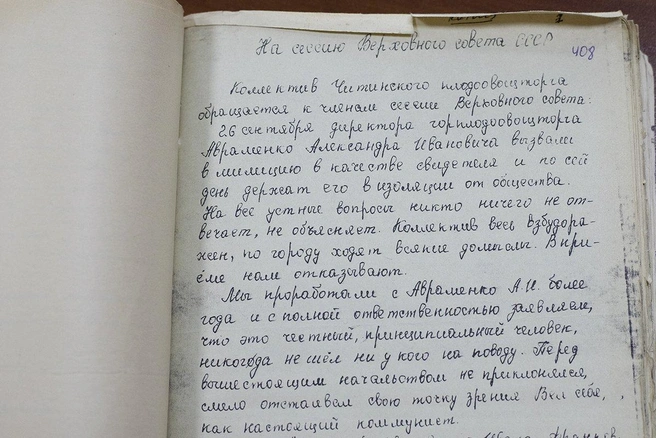 На сессию Верховного совета СССР
408
Коллектив Читинского плодоовощторга
обращается к членам сессии Верховного совета:
26 сентября директора горплодоовощторга
Авраменко Александра Ивановича вызвали
в милицию в качестве свидетеля и по сей
день держат его в изоляции от общества.
На все устные вопросы никто ничего не от-
вечает, не объясняет. Коллектив весь взбудора-
жен, по городу ходят всякие домыслы. В при-
ёме нам отказывают.
Мы проработали с Авраменко А.И. более
года и с полной ответственностью заявляем,
что это честный, принципиальный человек,
никогда не шёл ни у кого на поводу. Перед
вышестоящим начальством не приклонялся,
смело отстаивал свою точку зрения Вел себя,
как настоящий коммунист.